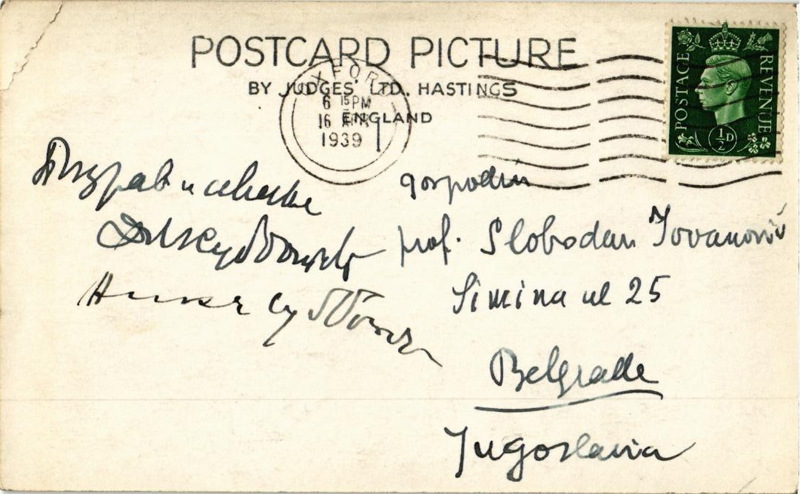 POSTCARD PICTURE
BY JUDGES' LTD., HASTINGS
ENGLAND
OXFORD
6 15 PM
16 APR
1939
POSTAGE
REVENUE
½D
gospodin
prof. Slobodan Jovanović
Simina ul 25
Belgrade
Jugoslavia